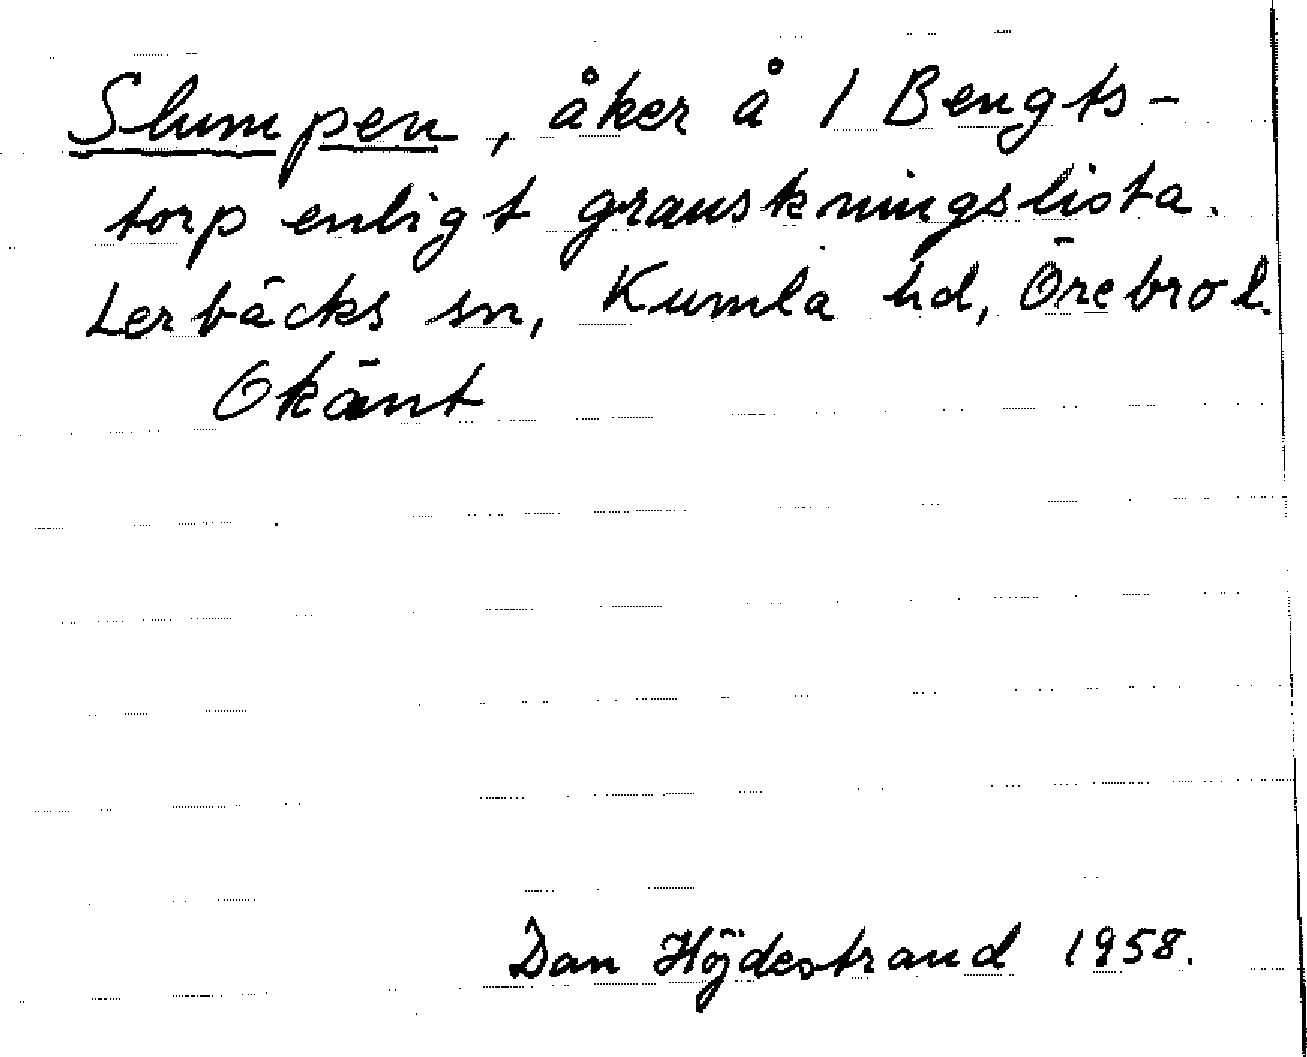 Slumpen, åker å 1 Bengts-
torp enligt granskningslista.
Lerbäcks sn, Kumla hd, Örebro l.
Okänt
Dan Höjdestrand 1958.